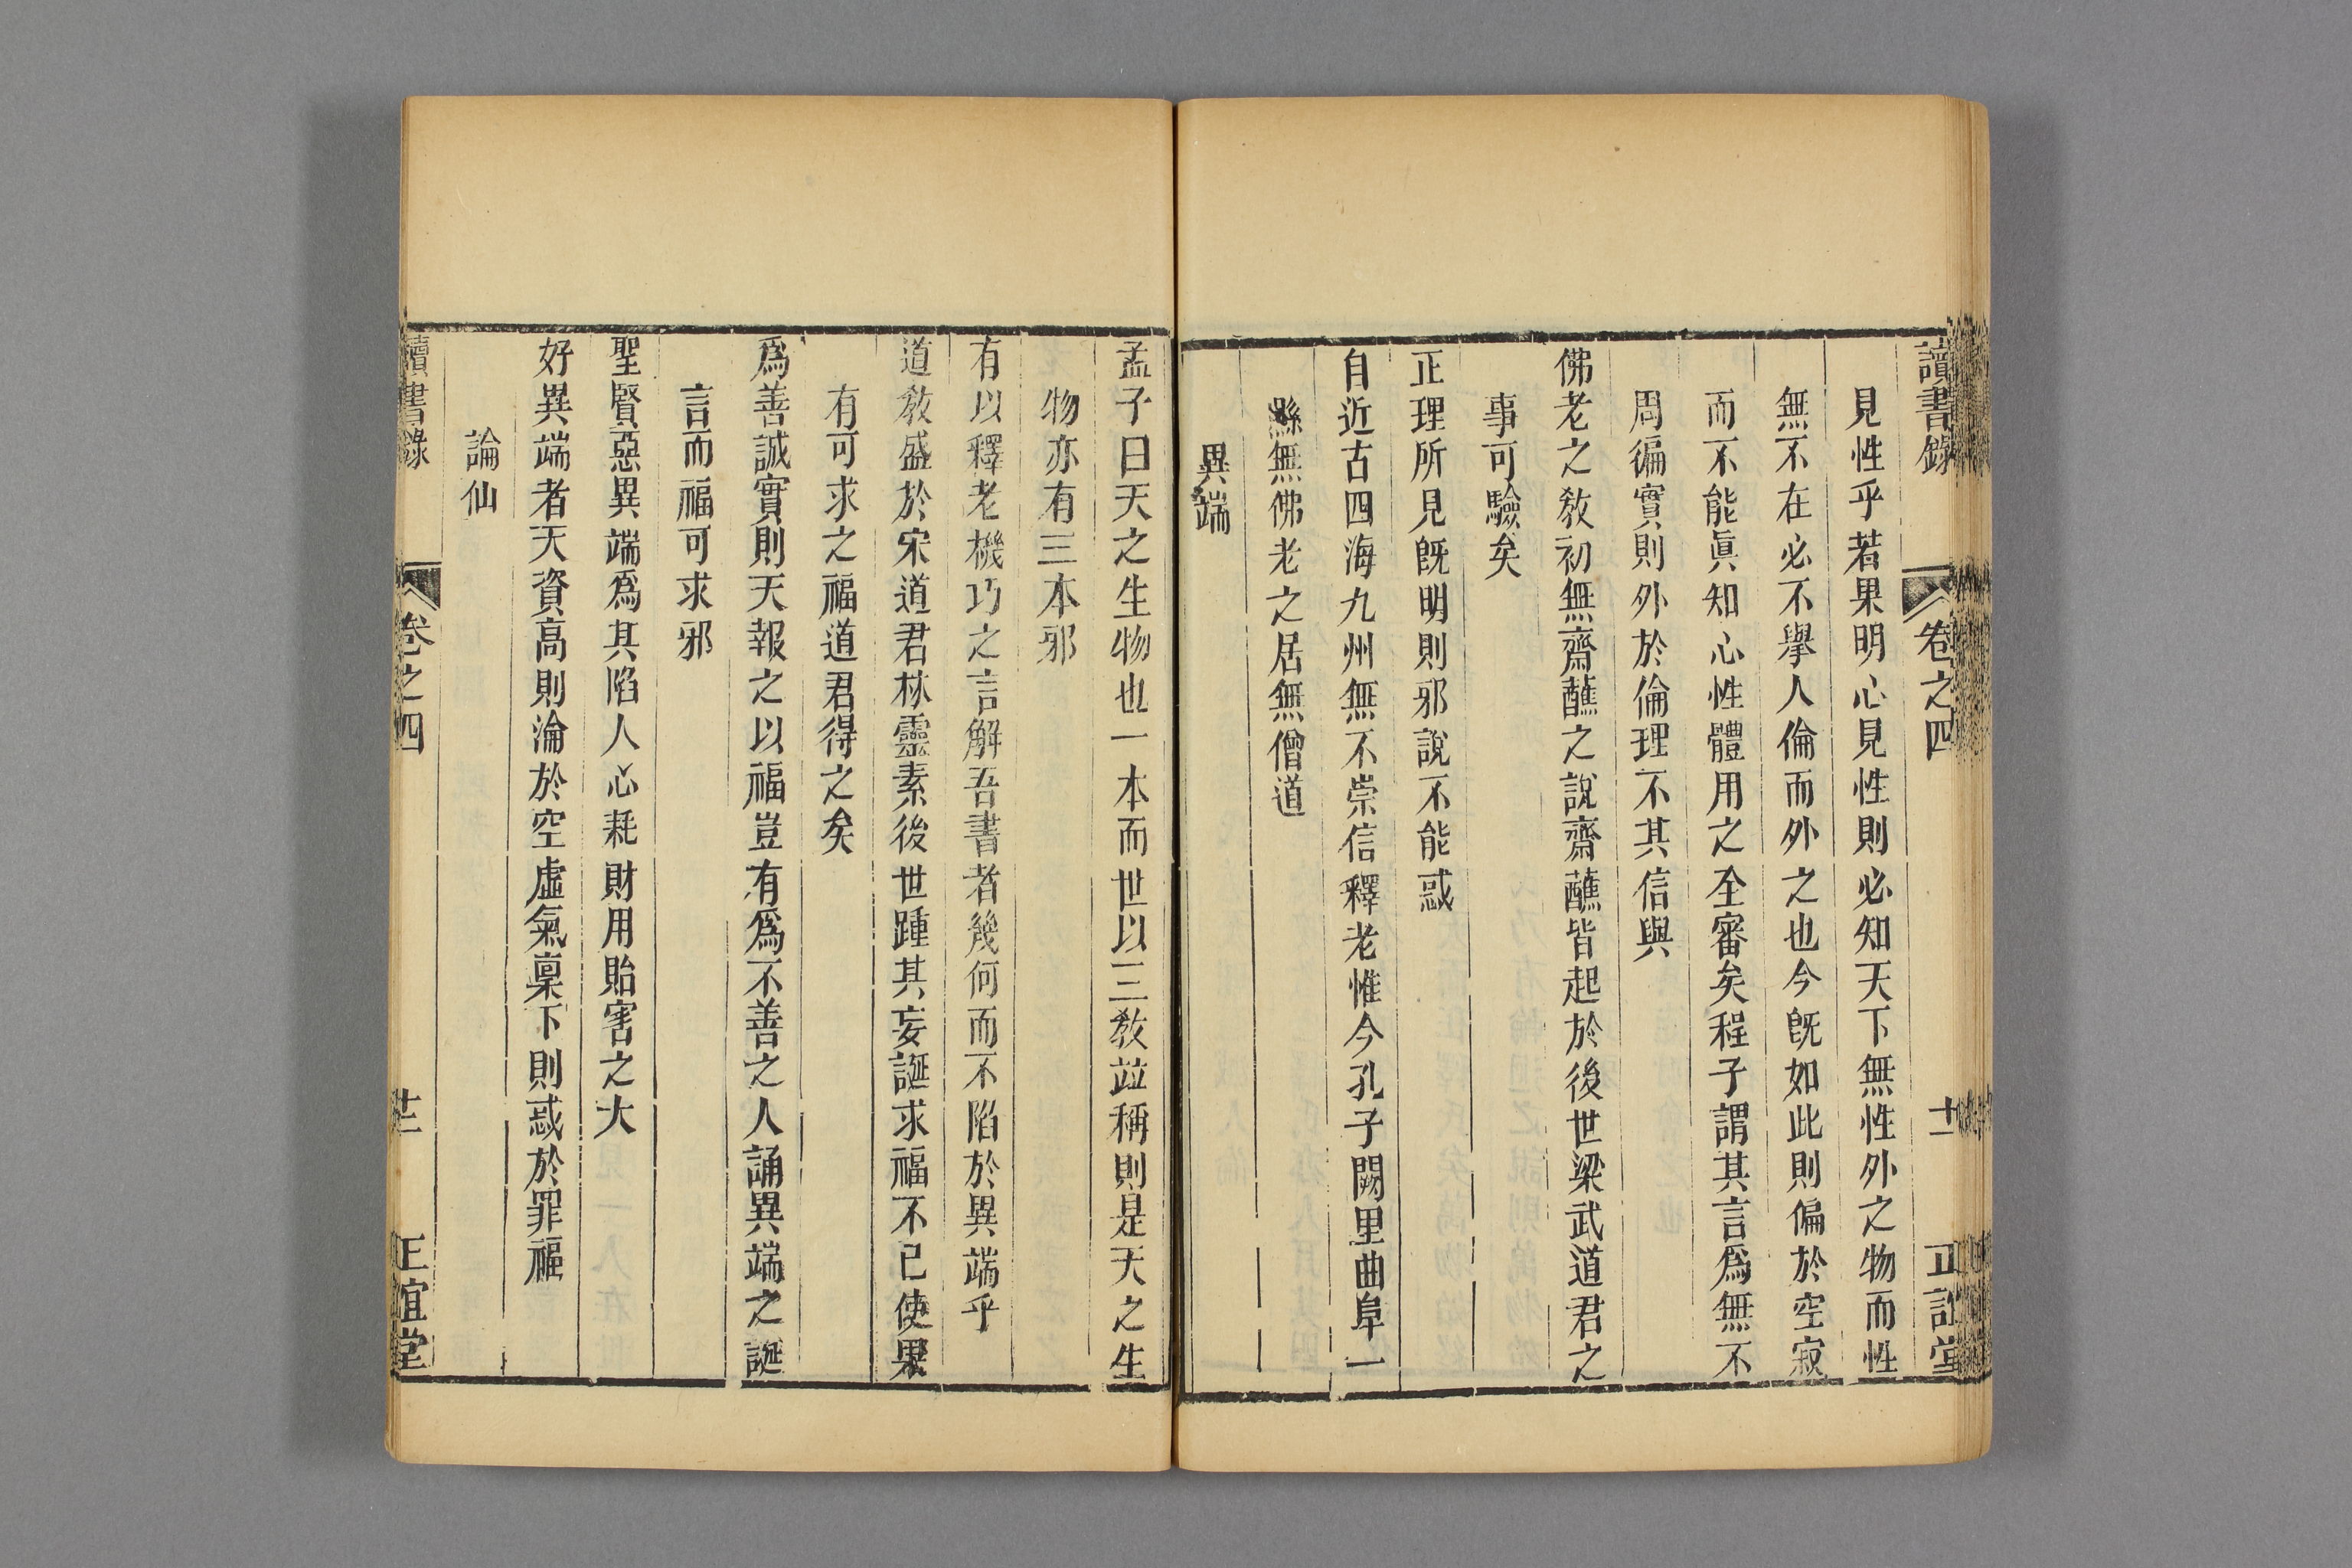 讀書錄 卷之四 十一 正誼堂
見性乎若果明心見性則必知天下無性外之物而性
無不在必不擧人倫而外之也今旣如此則偏於空寂
而不能眞知心性體用之全審矣程子謂其言爲無不
周徧實則外於倫理不其信與
佛老之敎初無齋醮之說齋醮皆起於後世梁武道君之
事可驗矣
正理所見旣明則邪說不能惑
自近古四海九州無不崇信釋老惟今孔子闕里曲阜一
縣無佛老之居無僧道
異端
孟子曰天之生物也一本而世以三敎竝稱則是天之生
物亦有三本邪
有以釋老機巧之言解吾書者幾何而不陷於異端乎
道敎盛於宋道君林靈素後世踵其妄誕求福不已使果
有可求之福道君得之矣
爲善誠實則天報之以福豈有爲不善之人誦異端之誕
言而福可求邪
聖賢惡異端爲其陷人心耗財用貽害之大
好異端者天資高則淪於空虛氣稟下則惑於罪福
論仙
讀書錄 卷之四 正誼堂